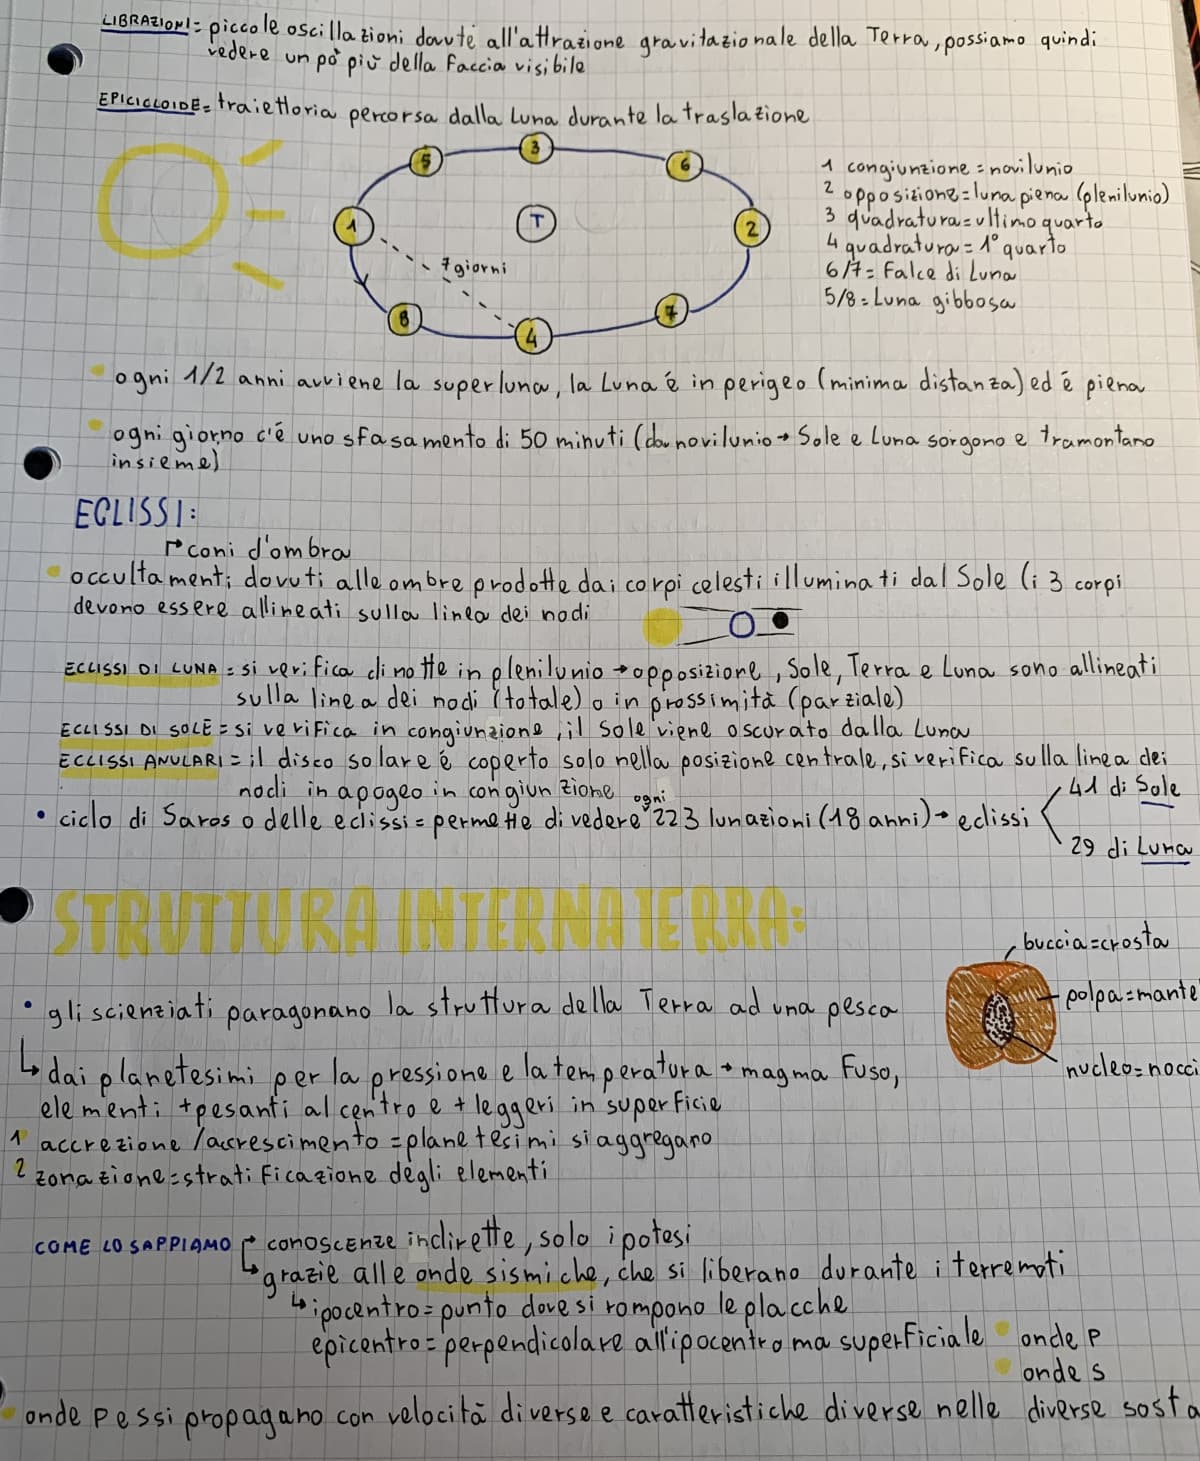 LIBRAZIONI= piccole oscillazioni dovute all'attrazione gravitazionale della Terra, possiamo quindi
vedere un pò più della faccia visibile
EPICICLOIDE= traiettoria percorsa dalla Luna durante la traslazione
5
3
6
1
T
2
7 giorni
8
4
7
1 congiunzione = novilunio
2 opposizione=luna piena (plenilunio)
3 quadratura=ultimo quarto
4 quadratura= 1° quarto
6/7= Falce di Luna
5/8=Luna gibbosa
ogni 1/2 anni avviene la superluna, la Luna è in perigeo (minima distanza) ed è piena
ogni giorno c'è uno sfasamento di 50 minuti (da novilunio→ Sole e Luna sorgono e tramontano
insieme)
ECLISSI:
coni d'ombra
occultamenti dovuti alle ombre prodotte dai corpi celesti illuminati dal Sole (i 3 corpi
devono essere allineati sulla linea dei nodi
ECLISSI DI LUNA = si verifica di notte in plenilunio → opposizione, Sole, Terra e Luna sono allineati
sulla linea dei nodi (totale) o in prossimità (parziale)
ECLISSI DI SOLE = si verifica in congiunzione, il Sole viene oscurato dalla Luna
ECLISSI ANULARI = il disco solare è coperto solo nella posizione centrale, si verifica sulla linea dei
nodi in apogeo in congiunzione
• ciclo di Saros o delle eclissi = permette di vedere ogni 223 lunazioni (18 anni) → eclissi
41 di Sole
29 di Luna
STRUTTURA INTERNA TERRA:
• gli scienziati paragonano la struttura della Terra ad una pesca
buccia=crosta
polpa=mante
nucleo=nocci
↳ dai planetesimi per la pressione e la temperatura → magma fuso,
elementi +pesanti al centro e + leggeri in superficie
1 accrezione /accrescimento = planetesimi si aggregano
2 zonazione=stratificazione degli elementi
COME LO SAPPIAMO → conoscenze indirette, solo ipotesi
↳ grazie alle onde sismiche, che si liberano durante i terremoti
↳ ipocentro= punto dove si rompono le placche
epicentro= perpendicolare all'ipocentro ma superficiale
onde P
onde s
onde P e s si propagano con velocità diverse e caratteristiche diverse nelle diverse sosta